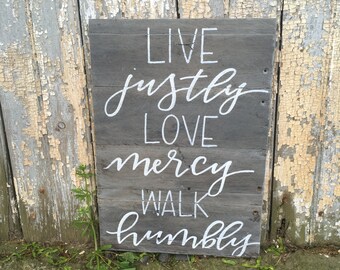 LIVE
justly
LOVE
mercy
WALK
humbly